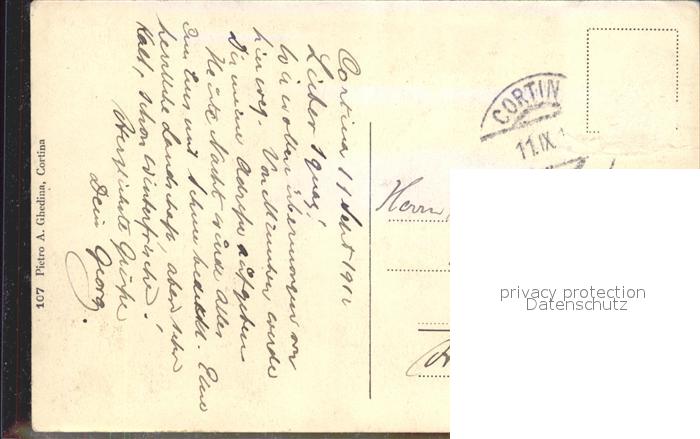 Cortina 11 Sept 1911
Lieber Ignaz!
Wir wollen übermorgen von
hier weg. Von München werde
Dir meine Adresse aufgeben
Heute Nacht wurde alles
mit Schnee bedeckt. Eine
herrliche Landschaft, aber sehr
kalt, schon Winterfrische!
Herzlichste Grüße
Dein Georg.
107 Pietro A. Ghedina, Cortina
CORTIN
11.IX.1
Herrn
privacy protection
Datenschutz